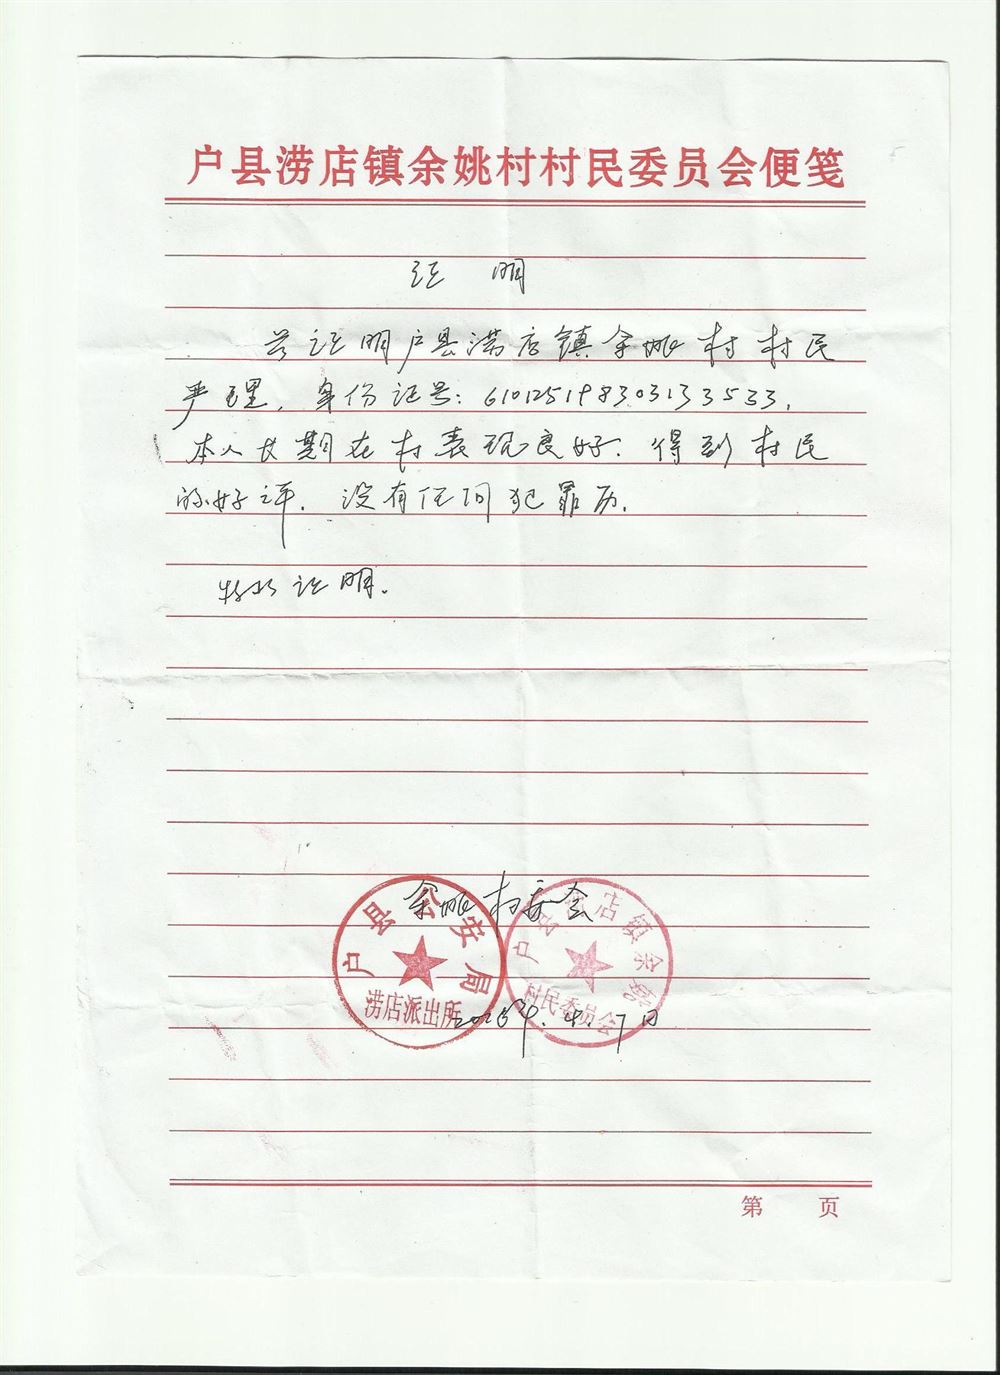 户县涝店镇余姚村村民委员会便笺
证 明
兹证明户县涝店镇余姚村村民
严理，身份证号：610125198303133533，
本人长期在村表现良好．得到村民
的好评．没有任何犯罪历．
特此证明．
余姚村委会
户县公安局
涝店派出所
户县涝店镇余姚
村民委员会
年．4．7日
第 页